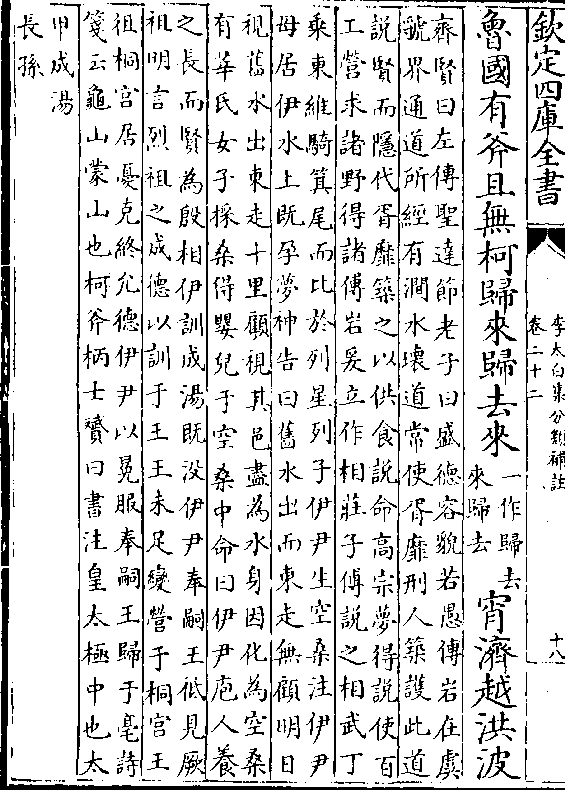 欽定四庫全書
李太白集分類補註
卷二十二
十八
魯國有斧且無柯歸來歸去來一作歸去來歸去宵濟越洪波
齊賢曰左傳聖達節老子曰盛德容貌若愚傅岩在虞
虢界通道所經有澗水壞道常使胥靡刑人築護此道
説賢而隱代胥靡築之以供食説命高宗夢得説使百
工營求諸野得諸傅岩爰立作相莊子傅説之相武丁
乘東維騎箕尾而比於列星列子伊尹生空桑注伊尹
母居伊水上既孕夢神告曰舊水出而東走無顧明日
視舊水出東走十里顧視其邑盡為水身因化為空桑
有莘氏女子採桑得嬰兒于空桑中命曰伊尹庖人養
之長而賢為殷相伊訓成湯既没伊尹奉嗣王祗見厥
祖明言烈祖之成德以訓于王王未足變營于桐宮王
徂桐宮居憂克終允德伊尹以冕服奉嗣王歸于亳詩
箋云龜山蒙山也柯斧柄士贇曰書注皇太極中也太
甲成湯
長孫